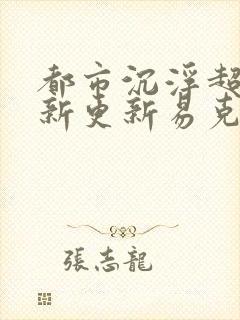 都市沉浮超
新更新易克
張志龍